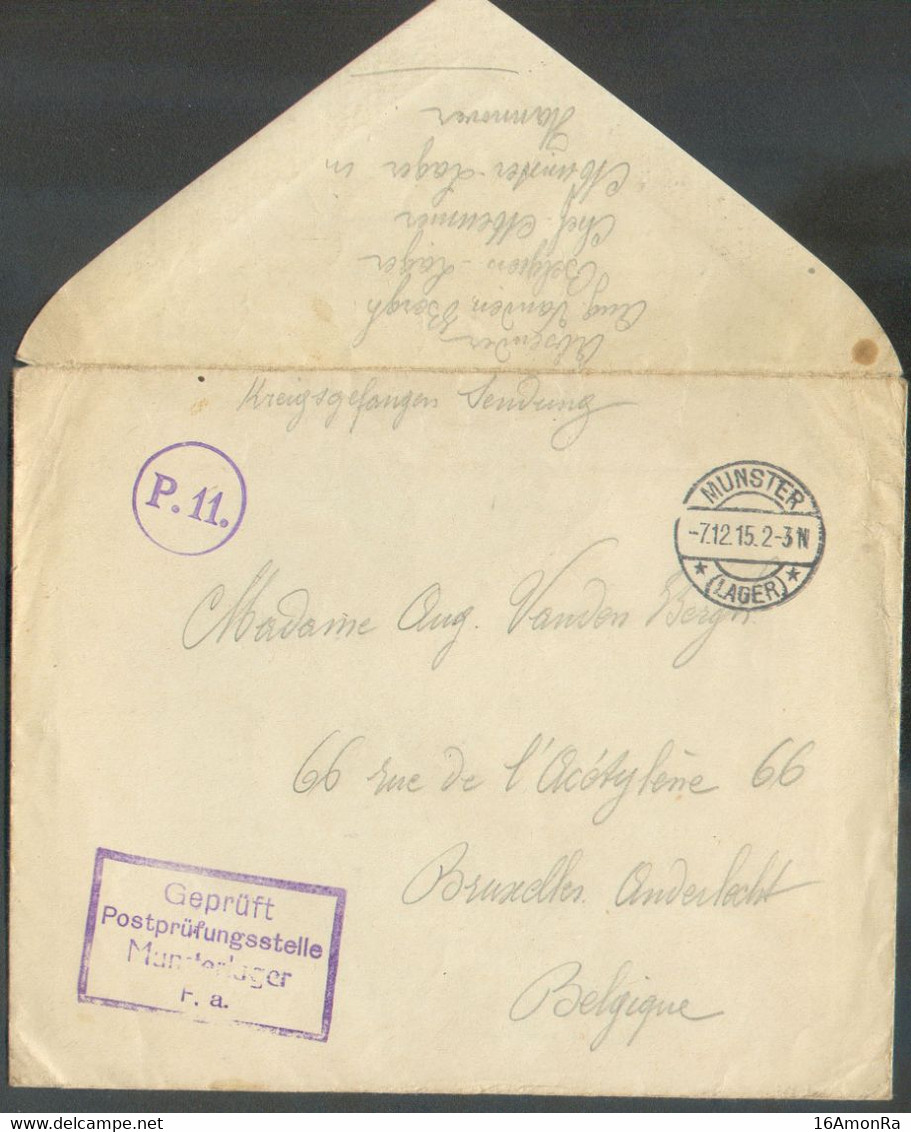 Absender
Aug. Vanden Bergh
Belgien-Lager
Chef. Meunier
Munster-Lager in
Hannover
Kreigsgefangen Sendung
P. 11.
MUNSTER
-7.12.15. 2-3 N
* (LAGER) *
Madame Aug. Vanden Bergh
66 rue de l'Acétylène 66
Bruxelles. Anderlecht
Belgique
Geprüft
Postprüfungsstelle
Munsterlager
F. a.
16AmonRa